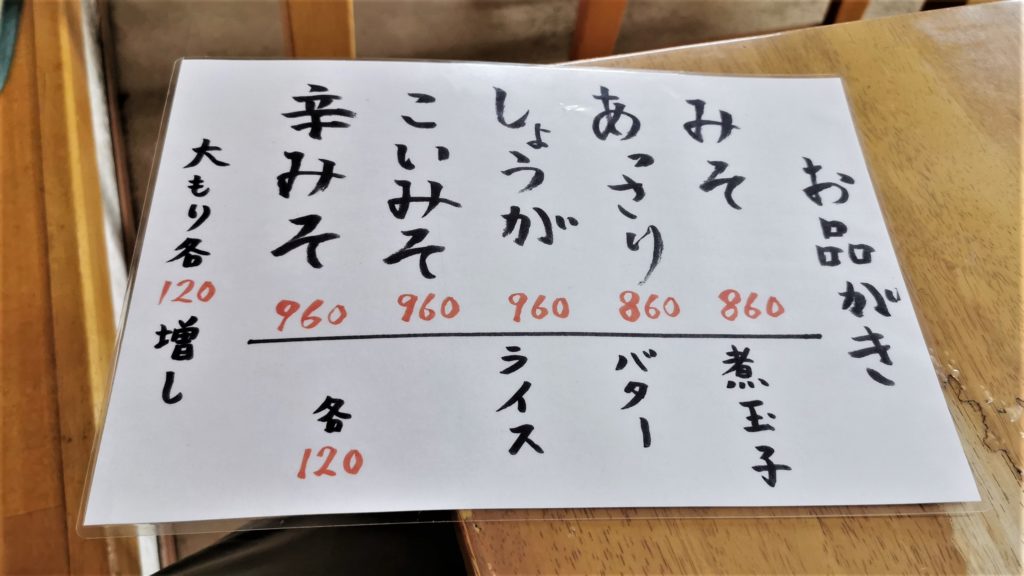 お品がき
みそ 860
あっさり 860
しょうが 960
こいみそ 960
辛みそ 960
煮玉子
バター
ライス
各 120
大もり各 120 増し